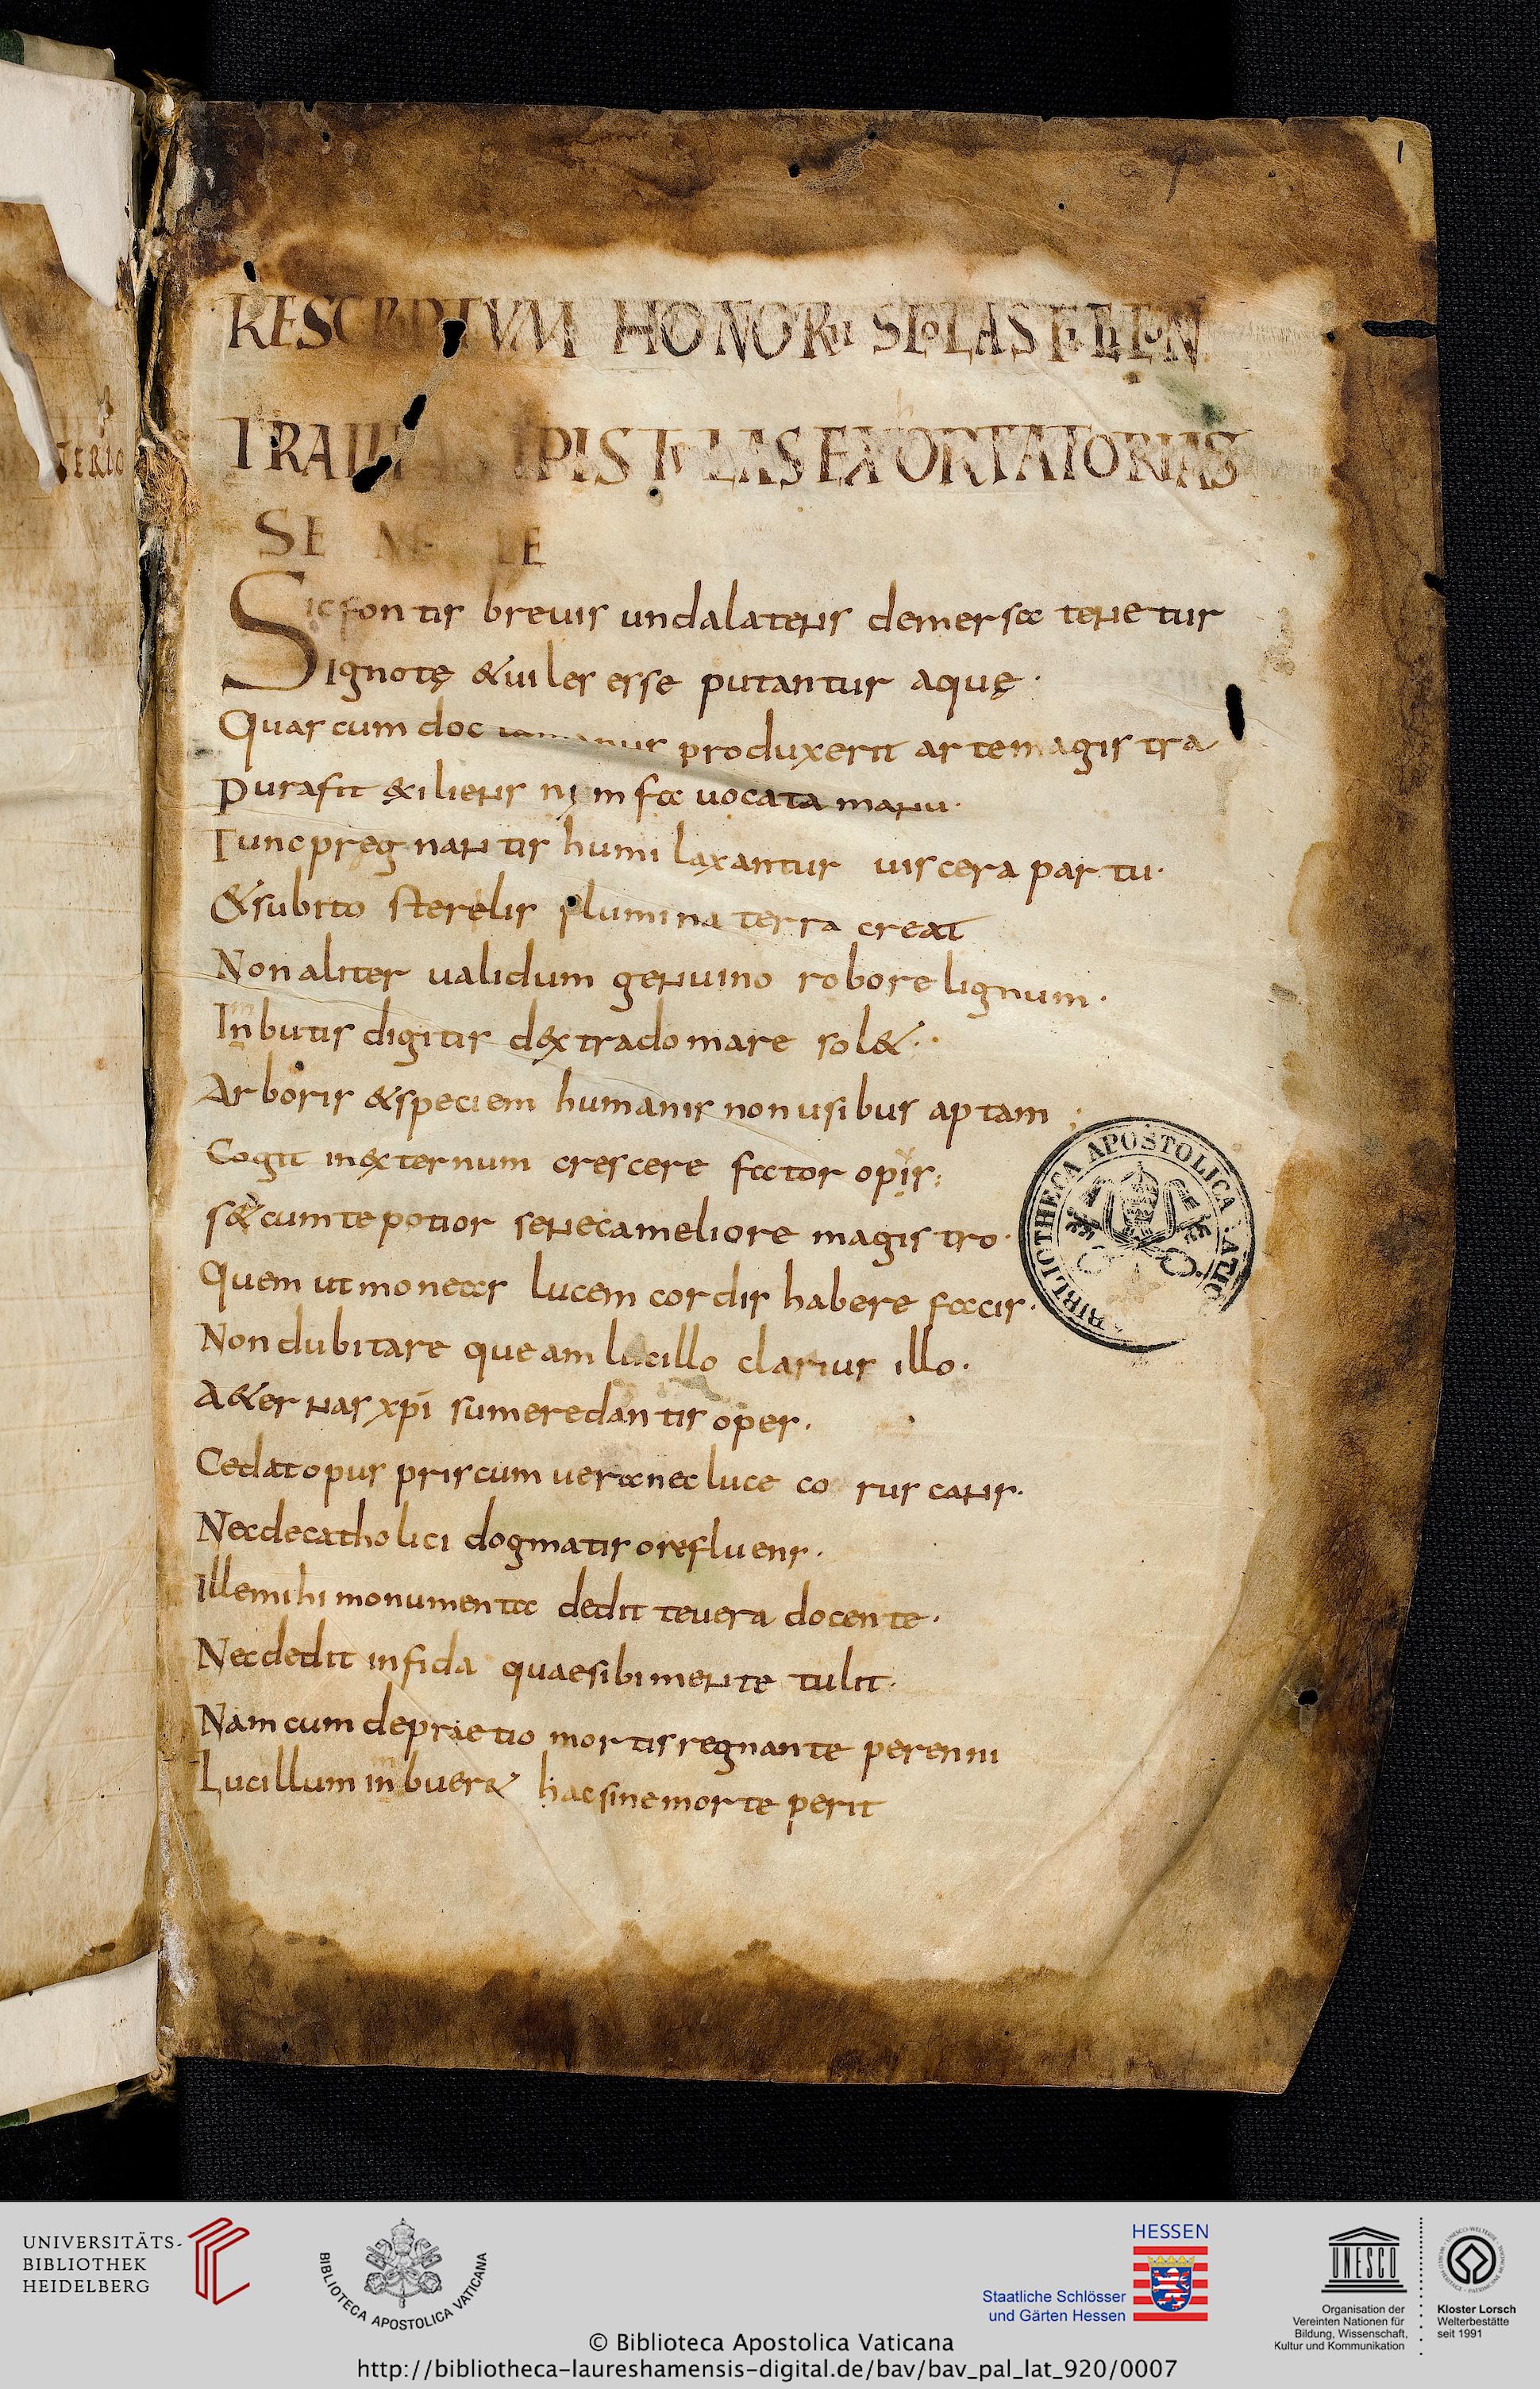 1
RESCRIPTUM HONORII SCOLASTICI CON
TRA EPISTOLAS EXORTATORIAS
SENECE
TERIO
Sic fontis brevis unda latens demersa tenetur
Ignotę & viles esse putantur aquę·
Quas cum doc manus produxerit arte magistra
Pura fit & ilie ns nimfa vocata manu·
Tunc pregnantis humi laxantur viscera partu·
& subito sterelis flumina terra creat
Non aliter validum genuino robore lignum·
Inbutis digitis dextra domare sol&·
Arboris & speciem humanis non usibus aptam
Cogit in externum crescere factor opis:
s& cum te potior seneca meliore magistro·
Quem ut moneas lucem cordis habere facis·
Non dubitare queam lucillo clarius illo·
A&ernas xpi sumere dantis opes·
Cedat opus priscum vera nec luce co ruscans·
Nec de catholici dogmatis ore fluens·
Ille mihi monumenta dedit te vera docente·
Nec dedit infida quae sibi mente tulit·
Nam cum de praetio mortis regnante perenni
Lucillum inbuer& hac sine morte perit
BIBLIOTHECA APOSTOLICA VATIC
UNIVERSITÄTS-
BIBLIOTHEK
HEIDELBERG
BIBLIOTECA APOSTOLICA VATICANA
HESSEN
Staatliche Schlösser
und Gärten Hessen
UNESCO
Organisation der
Vereinten Nationen für
Bildung, Wissenschaft,
Kultur und Kommunikation
Kloster Lorsch
Welterbestätte
seit 1991
© Biblioteca Apostolica Vaticana
http://bibliotheca-laureshamensis-digital.de/bav/bav_pal_lat_920/0007